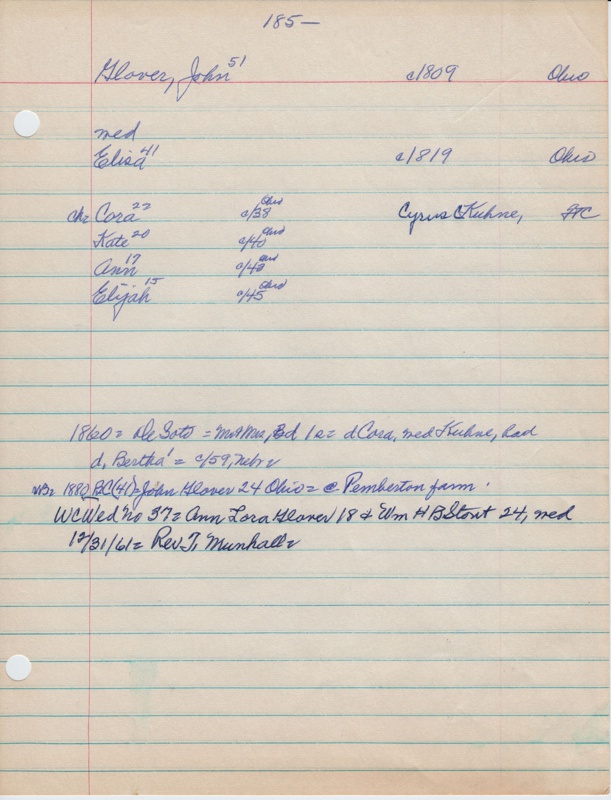 185—
Glover, John 51 c/1809 Ohio
med
Elisa 41 c/1819 Ohio
Ohio
ch= Cora 22 c/38 Cyrus C Kuhne,
Ohio
Kate 20 c/40
Ann 17 c/43
Ohio
Elijah 15 c/45
1860= De Soto = Mr & Mrs, Bd 1 = d Cora, med Kuhne, had
d, Bertha 1 = c/59, Nebr=
NB= 1880 BC(41)= John Glover 24 Ohio= @ Pemberton farm.
WC Wed No 37= Ann Lora Glover 18 & Wm H B Stout 24, med
12/31/61= Rev. T. Munhall=